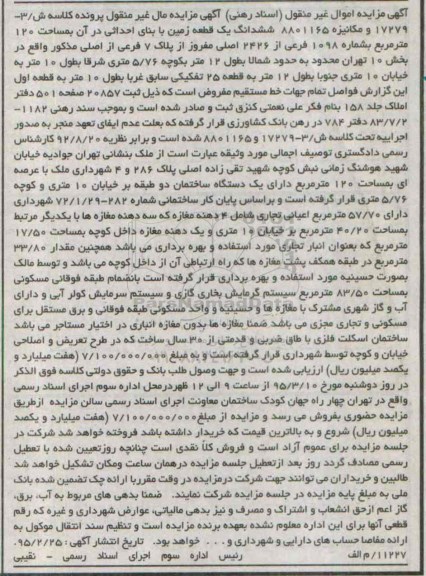 آگهی مزایده اموال غیر منقول (اسناد رهنی) آگهی مزایده مال غیر منقول پرونده کلاسه ش/۳-
۱۷۲۷۹ و مکانیزه ۸۸۰۱۱۶۵ ششدانگ یک قطعه زمین با بنای احداثی در آن بمساحت ۱۲۰
مترمربع بشماره ۱۰۹۸ فرعی از ۲۴۲۶ اصلی مفروز از پلاک ۷ فرعی از اصلی مذکور واقع در
بخش ۱۰ تهران محدود به حدود شمالا بطول ۱۲ متر بکوچه ۵/۷۶ متری شرقا بطول ۱۰ متر به
خیابان ۱۰ متری جنوبا بطول ۱۲ متر به قطعه ۲۵ تفکیکی سابق غربا بطول ۱۰ متر به قطعه اول
این گزارش فواصل تمام جهات خط مستقیم مفروض است که ذیل ثبت ۲۰۸۵۷ صفحه ۵۰۱ دفتر
املاک جلد ۱۵۸ بنام فکر علی نعمتی کنزق ثبت و صادر شده است و بموجب سند رهنی ۱۱۸۲-
۸۳/۷/۲ دفتر ۷۸۴ در رهن بانک کشاورزی قرار گرفته که بعلت عدم ایفای تعهد منجر به صدور
اجراییه تحت کلاسه ش/۳-۱۷۲۷۹ و ۸۸۰۱۱۶۵ شده است و برابر نظریه ۹۲/۸/۲۰ کارشناس
رسمی دادگستری توصیف اجمالی مورد وثیقه عبارت است از ملک بنشانی تهران جوادیه خیابان
شهید هوشنگ زمانی نبش کوچه شهید تقی زاده اصلی پلاک ۲۸۶ و ۴ شهرداری ملک با عرصه
ای بمساحت ۱۲۰ مترمربع دارای یک دستگاه ساختمان دو طبقه بر خیابان ۱۰ متری و کوچه
۵/۷۶ متری قرار گرفته است و براساس پایان کار ساختمانی شماره ۲۸۲-۷۲/۱/۲۹ شهرداری
دارای ۵۷/۷۰ مترمربع اعیانی تجاری شامل ۴ دهنه مغازه که سه دهنه مغازه ها با یکدیگر مرتبط
بمساحت ۴۰/۲۰ مترمربع بر خیابان ۱۰ متری و یک دهنه مغازه داخل کوچه بمساحت ۱۷/۵۰
مترمربع که بعنوان انبار تجاری مورد استفاده و بهره برداری می باشد همچنین مقدار ۳۳/۸۰
مترمربع در طبقه همکف پشت مغازه ها که راه ارتباطی آن از داخل کوچه می باشد و توسط مالک
بصورت حسینیه مورد استفاده و بهره برداری قرار گرفته است بانضمام طبقه فوقانی مسکونی
بمساحت ۸۳/۵۰ مترمربع سیستم گرمایش بخاری گازی و سیستم سرمایش کولر آبی و دارای
آب و گاز شهری مشترک با مغازه ها و حسینیه و واحد مسکونی طبقه فوقانی و برق مستقل برای
مسکونی و تجاری مجزی می باشد ضمنا مغازه ها بدون مغازه انباری در اختیار مستاجر می باشد
ساختمان اسکلت فلزی با طاق ضربی و قدمتی از ۳۰ سال ساخت که در طرح تعریض و اصلاحی
خیابان و کوچه توسط شهرداری قرار گرفته است و به مبلغ ۷/۱۰۰/۰۰۰/۰۰۰ (هفت میلیارد و
یکصد میلیون ریال) ارزیابی شده است و جهت وصول طلب بانک و حقوق دولتی کلاسه فوق الذکر
در روز دوشنبه مورخ ۹۵/۳/۱۰ از ساعت ۹ الی ۱۲ ظهر درمحل اداره سوم اجرای اسناد رسمی
واقع در تهران چهار راه جهان کودک ساختمان معاونت اجرای اسناد رسمی سالن مزایده ازطریق
مزایده حضوری بفروش می رسد و مزایده از مبلغ ۷/۱۰۰/۰۰۰/۰۰۰ (هفت میلیارد و یکصد
میلیون ریال) شروع و به بالاترین قیمت که خریدار داشته باشد فروخته خواهد شد شرکت در
جلسه مزایده برای عموم آزاد است و فروش کلاً نقدی است چنانچه روزتعیین شده با تعطیل
رسمی مصادف گردد روز بعد ازتعطیل جلسه مزایده درهمان ساعت ومکان تشکیل خواهد شد
طالبین و خریداران می توانند جهت شرکت درمزایده در وقت مقرربا ارائه چک تضمین شده بانک
ملی به مبلغ پایه مزایده در جلسه مزایده شرکت نمایند. ضمنا بدهی های مربوط به آب، برق،
گاز اعم ازحق انشعاب و اشتراک و مصرف و نیز بدهی مالیاتی، عوارض شهرداری و غیره که رقم
قطعی آنها برای این اداره معلوم نشده بعهده برنده مزایده است و تنظیم سند انتقال موکول به
ارائه مفاصا حساب های دارایی و شهرداری و . . . خواهد بود. تاریخ انتشار آگهی: ۹۵/۲/۲۵.
۱۱۲۲۷/م الف رئیس اداره سوم اجرای اسناد رسمی - نقیبی